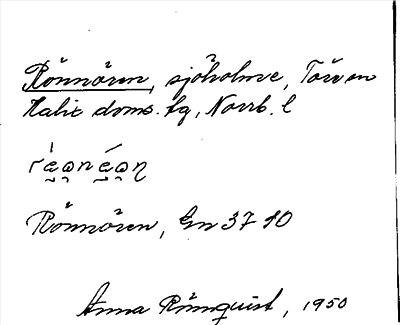 Rönnören, sjöholme, Töre sn
Kalix doms. tg, Norrb. l
Rönnören, Gn 37 10
Anna Rönnquist, 1950